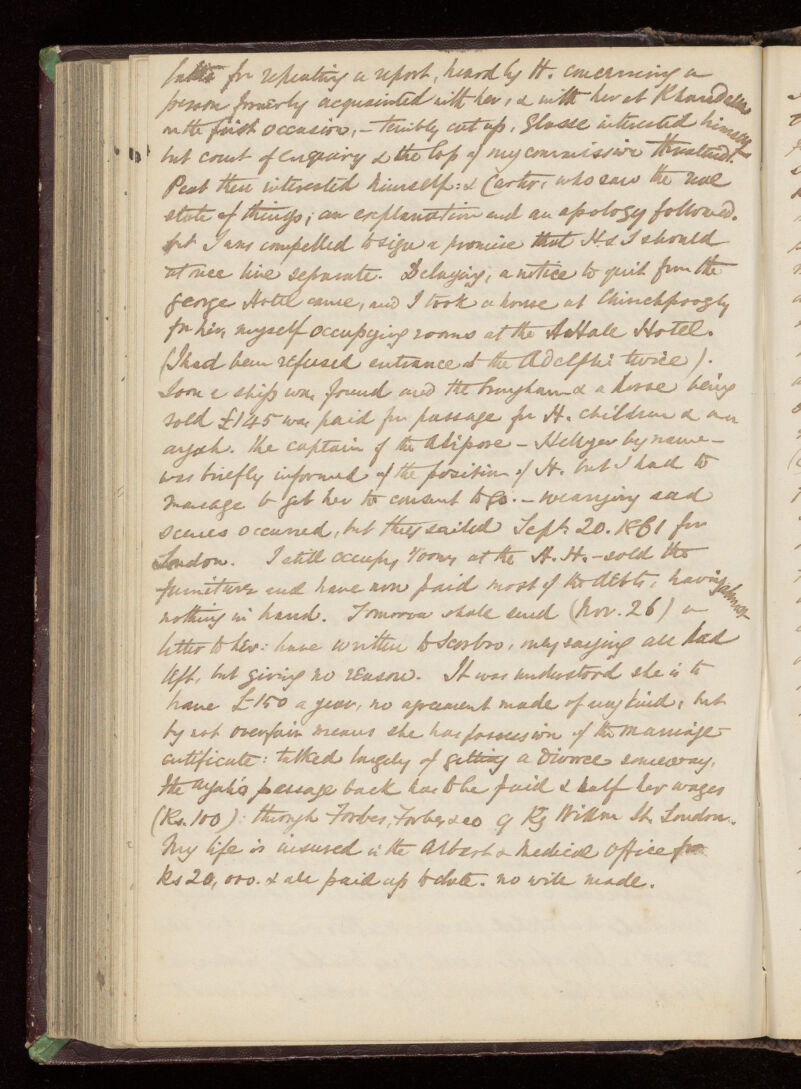 for repeating a report, heard by H. concerning a
person formerly acquainted with her, & with her at Khandalla
on the first occasion, – terribly cut up, Glasse interested himself
but court of enquiry & the lop of my commission threatened.
Peat then interested himself: & Carter, who saw the real
state of things; an explanation and an apology followed.
but I am compelled to sign a promise that H & I should
at once live separate. Delaying, a notice to quit from the
George Hotel came, and I took a house at Chinchpoogly
for her, myself occupying rooms at the Hotel.
(I had been refused entrance at the Adelphi twice).
Soon a ship was found and the brougham & a horse being
sold £145 was paid for passage for H. children & an
ayah. The captain of the Alipore – by name –
was briefly informed of the position of H. but I had to
manage to get her to consent to go. – wearying sad
scenes occurred, but they sailed Sept. 20. 1861 for
London. I still occupy rooms at the H. H. – sold the
furniture and have now paid most of the debts, having almost
nothing in hand. Tomorrow shall send (Nov. 26) a
letter to her: have written to Scarbro, only saying all had
left, but giving no reason. It was understood she is to
have £150 a year, no agreement made of any kind, but
by not over fair means she has possession of the marriage
certificate: talked largely of getting a divorce someway,
the ayah's passage back has to be paid & half her wages
(Rs. 100): through Forbes, Forbes & co 9 Kg Willm St. London.
My life is insured in the Albert & Medical Office for
Rs 20,000. & all paid up to date. no will made.